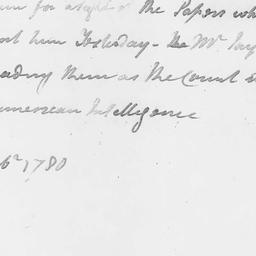 for a sight of the Papers wh
him Yesterday - the Mr Jay
reading them as the Count
American Intelligence
1780